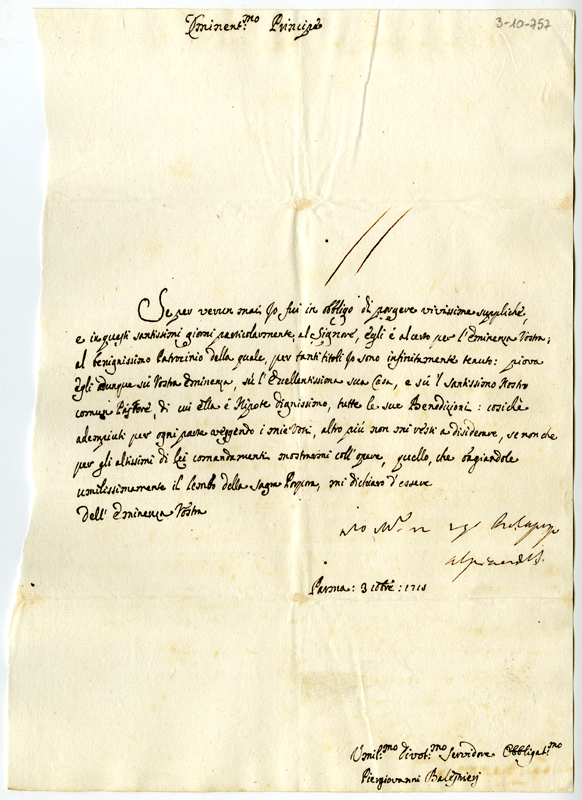 3-10-757
Eminent.mo Principe
Se per verun mai Jo fui in obbligo di porgere vivissime suppliche,
e in questi santissimi giorni particolarmente, al Signore, egli è al certo per l'Eminenza Vostra;
al benignissimo Patrocinio della quale, per tanti titoli Jo sono infinitamente tenuto: piova
Egli dunque sù Vostra Eminenza, sù l'Eccellentissima sua Casa, e sù 'l Santissimo Nostro
comun Pastore, di cui ella è Nipote dignissimo, tutte le sue Benedizioni: cosichè
adempiuti per ogni parte veggendo i miei Voti, altro più non mi resti a disiderare, se non che
per gli altissimi di Lei comandamenti mostrarmi coll'opere, quello, che bagiandole
umilissimamente il lembo della Sagra Porpora, mi dichiaro d'essere
Dell'Eminenza Vostra
Parma: 3 : 171
Umil.mo Divot.mo Servidore Obbligat.mo
Piergiovanni Balestrieri